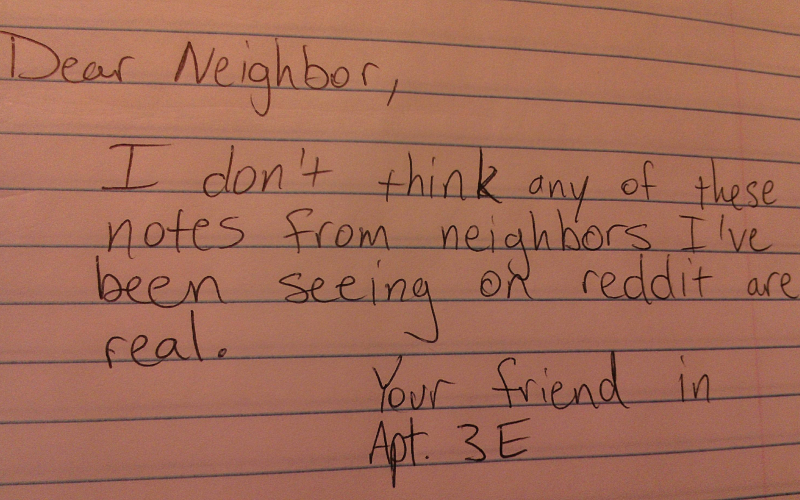 Dear Neighbor,
I don't think any of these
notes from neighbors I've
been seeing on reddit are
real.
Your friend in
Apt. 3E